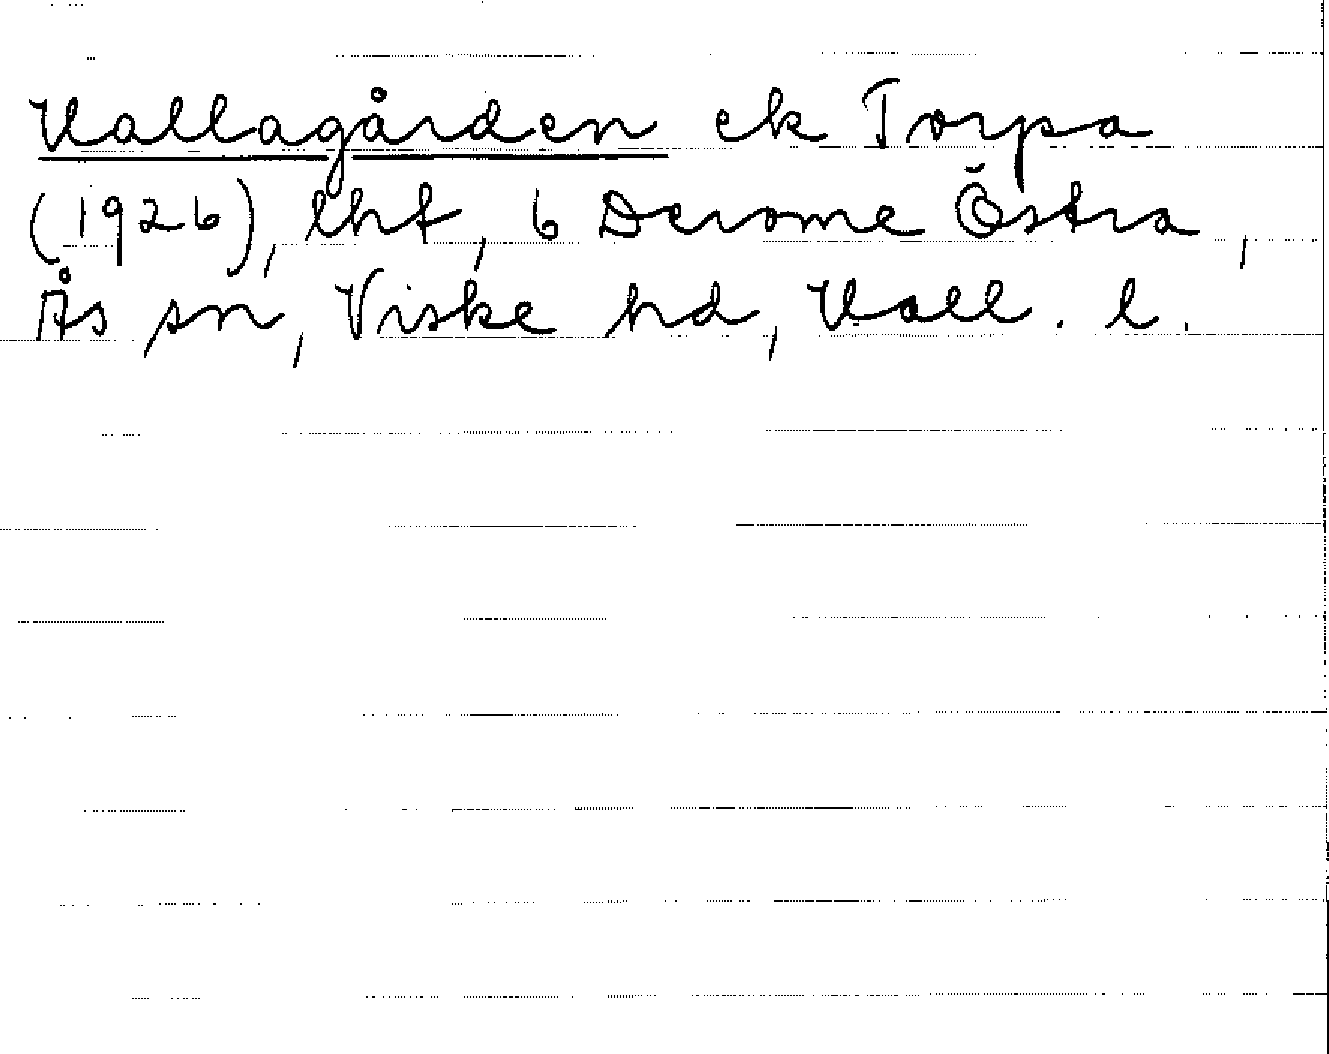 Hallagården ek Torpa
(1926), lht, 6 Derome Östra,
Ås sn, Viske hd, Hall. l.